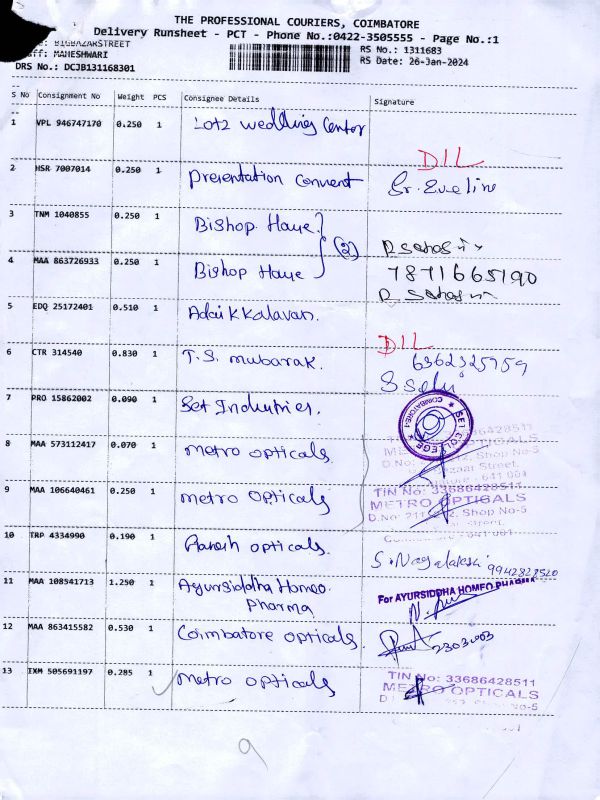 THE PROFESSIONAL COURIERS, COIMBATORE
Delivery Runsheet - PCT - Phone No.:0422-3505555 - Page No.:1
BIGBAZARSTREET
MAHESHWARI
RS No.: 1311683
DRS No.: DCJB131168301
RS Date: 26-Jan-2024
S No Consignment No Weight PCS Consignee Details Signature
1 VPL 946747170 0.250 1 Lotz wedding Center
DIL
2 HSR 7007014 0.250 1 Presentation Convent Sr. Eveline
3 TNM 1040855 0.250 1 Bishop House
(2)
4 MAA 863726933 0.250 1 Bishop House 7871665190
5 EDQ 25172401 0.510 1 Adaikkalavan.
DIL
6 CTR 314540 0.830 1 T.S. mubarak. 6362325759
S Selvi
7 PRO 15862002 0.090 1 Set Industries.
SET COLLEGE COIMBATORE-1
8 MAA 573112417 0.070 1 metro opticals.
TIN No: 33686428511
METRO OPTICALS
9 MAA 106640461 0.250 1 metro opticals
TIN No: 33686428511
METRO OPTICALS
D.No: 211 Shop No-5
10 TRP 4334990 0.190 1 opticals. S. Nagalakshmi
11 MAA 108541713 1.250 1 Ayursiddha Homeo.
Pharma
For AYURSIDDHA HOMEO PHARMA
12 MAA 863415582 0.530 1 Coimbatore opticals.
13 IXM 505691197 0.285 1 metro opticals
TIN No: 33686428511
METRO OPTICALS
Shop No-5
9